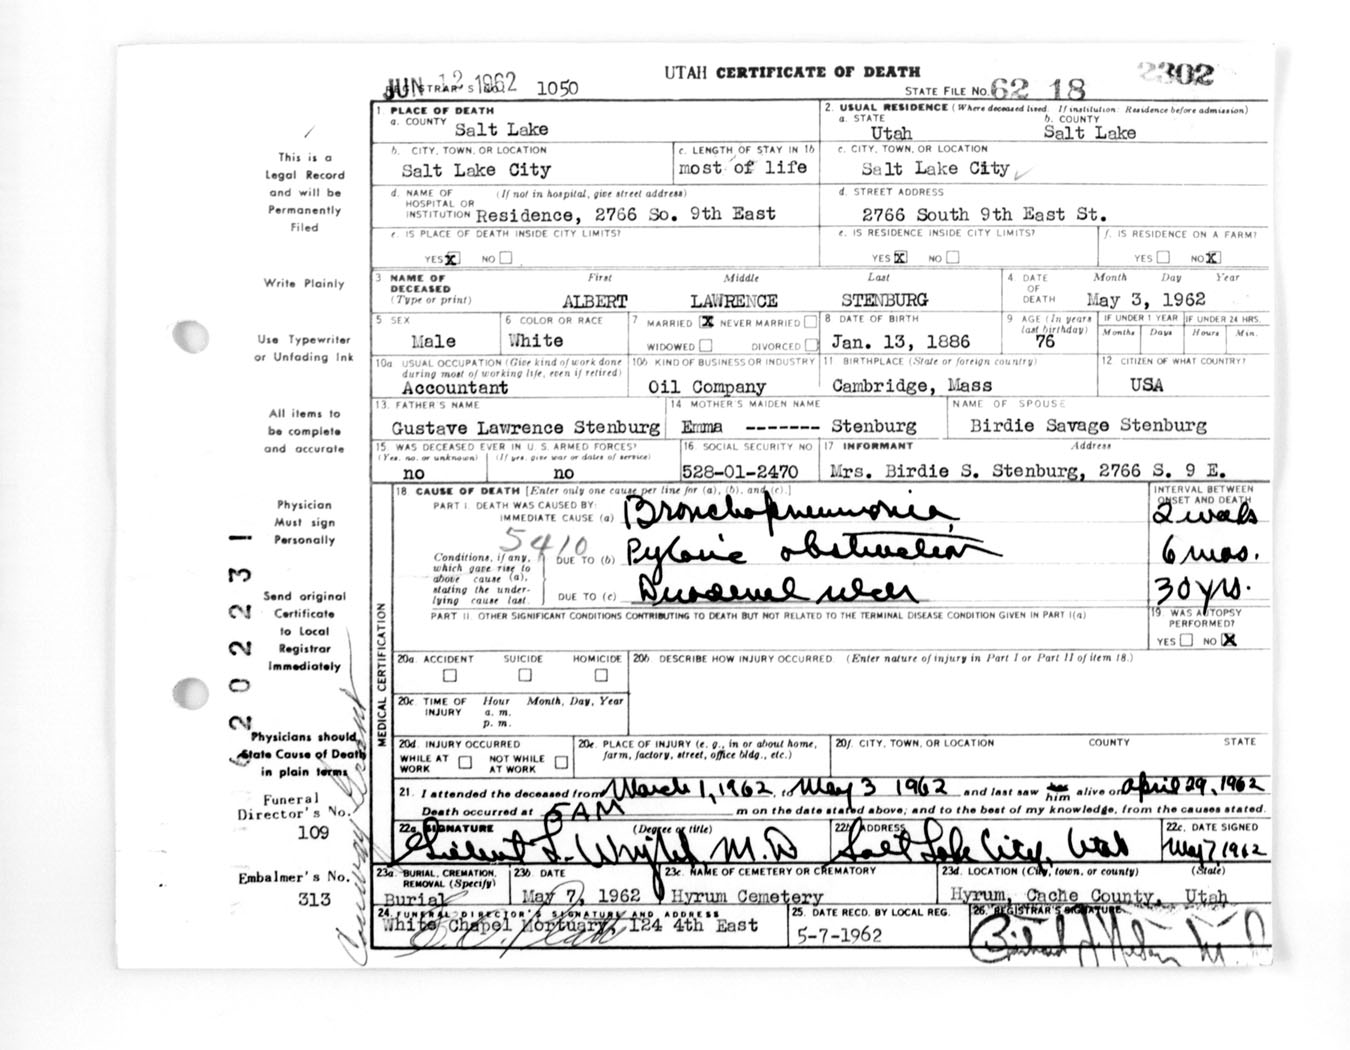 UTAH CERTIFICATE OF DEATH
2302
JUN 12 1962 1050
STATE FILE NO. 62 18
1 PLACE OF DEATH
a. COUNTY Salt Lake
2. USUAL RESIDENCE (Where deceased lived. If institution: Residence before admission)
a. STATE Utah b. COUNTY Salt Lake
b. CITY, TOWN, OR LOCATION Salt Lake City
c. LENGTH OF STAY IN 1b most of life
c. CITY, TOWN, OR LOCATION Salt Lake City
d. NAME OF HOSPITAL OR INSTITUTION (If not in hospital, give street address) Residence, 2766 So. 9th East
d. STREET ADDRESS 2766 South 9th East St.
e. IS PLACE OF DEATH INSIDE CITY LIMITS?
YES X NO
e. IS RESIDENCE INSIDE CITY LIMITS?
YES X NO
f. IS RESIDENCE ON A FARM?
YES NO X
3 NAME OF DECEASED (Type or print)
First Middle Last
ALBERT LAWRENCE STENBURG
4. DATE OF DEATH Month Day Year
May 3, 1962
5 SEX Male
6 COLOR OR RACE White
7 MARRIED X NEVER MARRIED
WIDOWED DIVORCED
8 DATE OF BIRTH Jan. 13, 1886
9 AGE (In years last birthday) 76
IF UNDER 1 YEAR Months Days
IF UNDER 24 HRS. Hours Min.
10a USUAL OCCUPATION (Give kind of work done during most of working life, even if retired)
Accountant
10b KIND OF BUSINESS OR INDUSTRY
Oil Company
11 BIRTHPLACE (State or foreign country)
Cambridge, Mass
12 CITIZEN OF WHAT COUNTRY?
USA
13. FATHER'S NAME
Gustave Lawrence Stenburg
14 MOTHER'S MAIDEN NAME
Emma ------- Stenburg
NAME OF SPOUSE
Birdie Savage Stenburg
15. WAS DECEASED EVER IN U. S. ARMED FORCES?
(Yes, no, or unknown) (If yes, give war or dates of service)
no no
16. SOCIAL SECURITY NO
528-01-2470
17 INFORMANT Address
Mrs. Birdie S. Stenburg, 2766 S. 9 E.
MEDICAL CERTIFICATION
18. CAUSE OF DEATH [Enter only one cause per line for (a), (b), and (c).]
INTERVAL BETWEEN ONSET AND DEATH
PART I. DEATH WAS CAUSED BY:
IMMEDIATE CAUSE (a) Bronchopneumonia, 2 weeks
5410
Conditions, if any, which gave rise to above cause (a), stating the underlying cause last.
DUE TO (b) Pyloric obstruction 6 mos.
DUE TO (c) Duodenal ulcer 30 yrs.
PART II. OTHER SIGNIFICANT CONDITIONS CONTRIBUTING TO DEATH BUT NOT RELATED TO THE TERMINAL DISEASE CONDITION GIVEN IN PART I(a)
19. WAS AUTOPSY PERFORMED?
YES NO X
20a. ACCIDENT SUICIDE HOMICIDE
20b. DESCRIBE HOW INJURY OCCURRED. (Enter nature of injury in Part I or Part II of item 18.)
20c. TIME OF INJURY Hour Month, Day, Year
a. m.
p. m.
20d. INJURY OCCURRED
WHILE AT WORK NOT WHILE AT WORK
20e. PLACE OF INJURY (e. g., in or about home, farm, factory, street, office bldg., etc.)
20f. CITY, TOWN, OR LOCATION COUNTY STATE
21. I attended the deceased from March 1, 1962, to May 3 1962 and last saw him alive on April 29, 1962
Death occurred at 5 AM m on the date stated above; and to the best of my knowledge, from the causes stated.
22a. SIGNATURE (Degree or title)
M. D
22b. ADDRESS
Salt Lake City, Utah
22c. DATE SIGNED
May 7, 1962
23a. BURIAL, CREMATION, REMOVAL (Specify)
Burial
23b. DATE
May 7, 1962
23c. NAME OF CEMETERY OR CREMATORY
Hyrum Cemetery
23d. LOCATION (City, town, or county) (State)
Hyrum, Cache County, Utah
24. FUNERAL DIRECTOR'S SIGNATURE AND ADDRESS
White Chapel Mortuary, 124 4th East
25. DATE RECD. BY LOCAL REG.
5-7-1962
26. REGISTRAR'S SIGNATURE
This is a
Legal Record
and will be
Permanently
Filed
Write Plainly
Use Typewriter
or Unfading Ink
All items to
be complete
and accurate
Physician
Must sign
Personally
Send original
Certificate
to Local
Registrar
Immediately
Physicians should
State Cause of Death
in plain terms
Funeral
Director's No.
109
Embalmer's No.
313